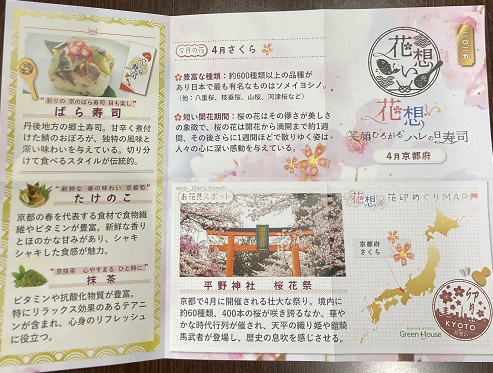 "彩りの 京のばら寿司 目も楽し"
ばら寿司
丹後地方の郷土寿司。甘辛く煮付
けた鯖のおぼろが、独特の風味と
深い味わいを与えている。切り分
けて食べるスタイルが伝統的。
"新鮮な 春の味わい 京都筍"
たけのこ
京都の春を代表する食材で食物繊
維やビタミンが豊富。新鮮な香り
とほのかな甘みがあり、シャキ
シャキした食感が魅力。
"京抹茶 心やすまる ひと時に"
抹茶
ビタミンや抗酸化物質が豊富。
特にリラックス効果のあるテアニ
ンが含まれ、心身のリフレッシュ
に役立つ。
今月の花 4月さくら
豊富な種類：約600種類以上の品種が
あり日本で最も有名なものはソメイヨシノ。
(他：八重桜、枝垂桜、山桜、河津桜など)
短い開花期間：桜の花はその儚さが美しさ
の象徴で、桜の花は開花から満開まで約1週
間、その後さらに1週間ほどで散りゆく姿は
人々の心に深い感動を与えている。
花想い
花想い
笑顔ひろがる ハレの日寿司
4月京都府
お花見スポット
平野神社 桜花祭
京都で4月に開催される壮大な祭り。境内に
約60種類、400本の桜が咲き誇るなか、華や
かな時代行列が催され、天平の織り姫や鎧騎
馬武者が登場し、歴史の息吹を感じさせる。
花想い 花印めぐりMAP
京都府
さくら
Green House
卯月
KYOTO